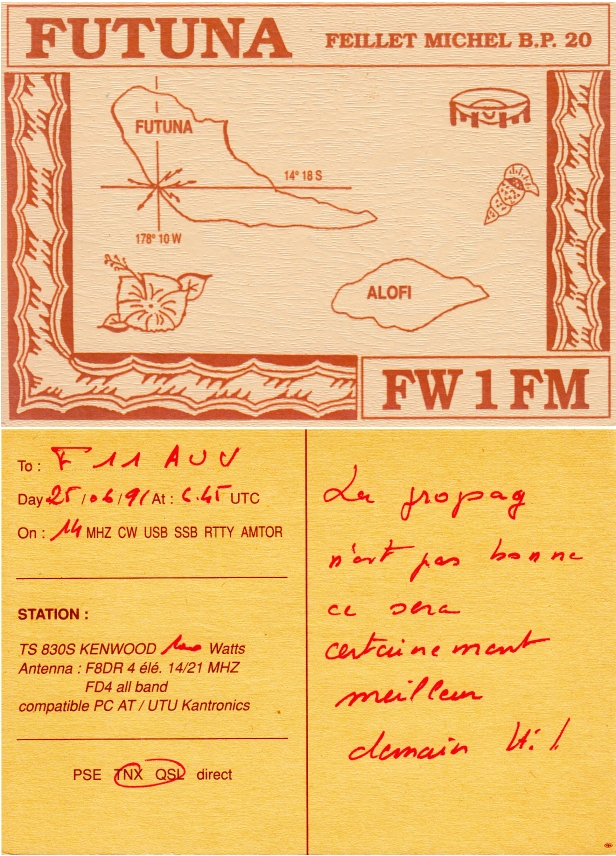 FUTUNA
FEILLET MICHEL B.P. 20
FUTUNA
14° 18 S
178° 10 W
ALOFI
FW 1 FM
To : F 11 AUV
Day 25 / 06 / 91 At : 6.45 UTC
On : 14 MHZ CW USB SSB RTTY AMTOR
STATION :
TS 830S KENWOOD Watts
Antenna : F8DR 4 élé. 14/21 MHZ
FD4 all band
compatible PC AT / UTU Kantronics
PSE TNX QSL direct
La propag
n'est pas bonne
ce sera
certainement
meilleur
demain Hi !